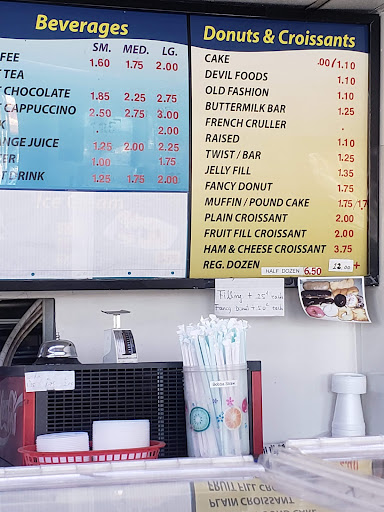 Beverages
SM. MED. LG.
FEE 1.60 1.75 2.00
TEA
CHOCOLATE 1.85 2.25 2.75
CAPPUCCINO 2.50 2.75 3.00
K 2.00
NGE JUICE 1.25 2.00 2.25
ER 1.00 1.75
T DRINK 1.25 1.75 2.00
Ice Cream
Donuts & Croissants
CAKE .00/1.10
DEVIL FOODS 1.10
OLD FASHION 1.10
BUTTERMILK BAR 1.25
FRENCH CRULLER
RAISED 1.10
TWIST / BAR 1.25
JELLY FILL 1.35
FANCY DONUT 1.75
MUFFIN / POUND CAKE 1.75/1.7
PLAIN CROISSANT 2.00
FRUIT FILL CROISSANT 2.00
HAM & CHEESE CROISSANT 3.75
REG. DOZEN HALF DOZEN 6.50 12.00 +
Filling + 25¢ each
Fancy Donut + 50¢ each
FRUIT FILL CROISSANT
PLAIN CROISSANT